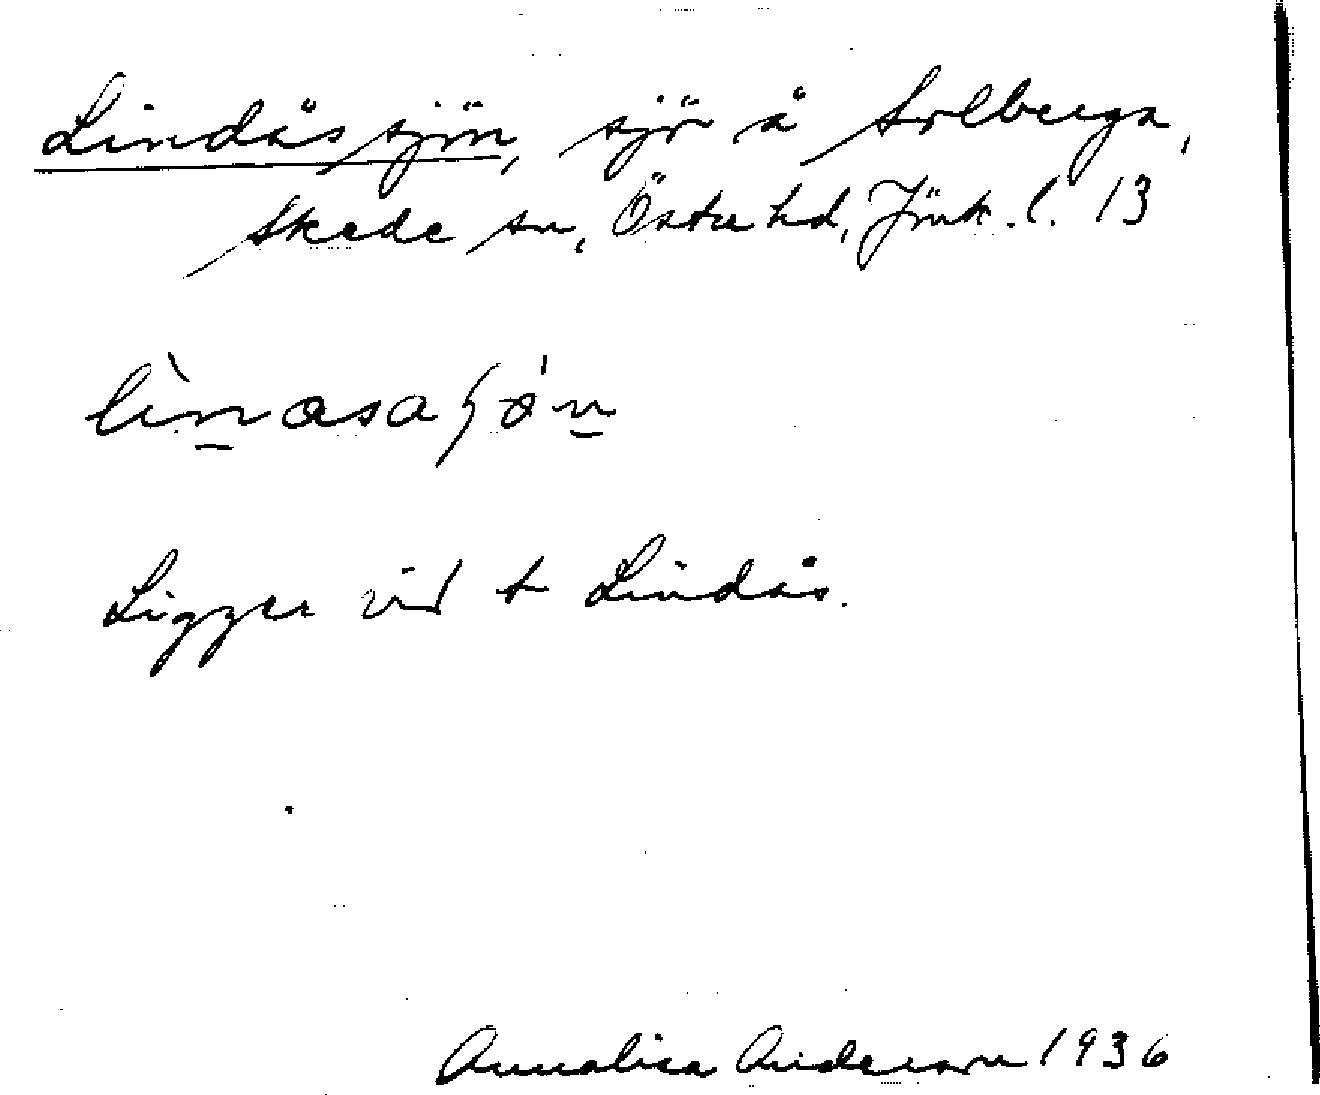 Lindåssjön, sjö å Solberga,
Skede sn, Östra hd, Jönk. l. 13
lìnasaʃón
Ligger vid t Lindås.
Annalisa Anderson 1936